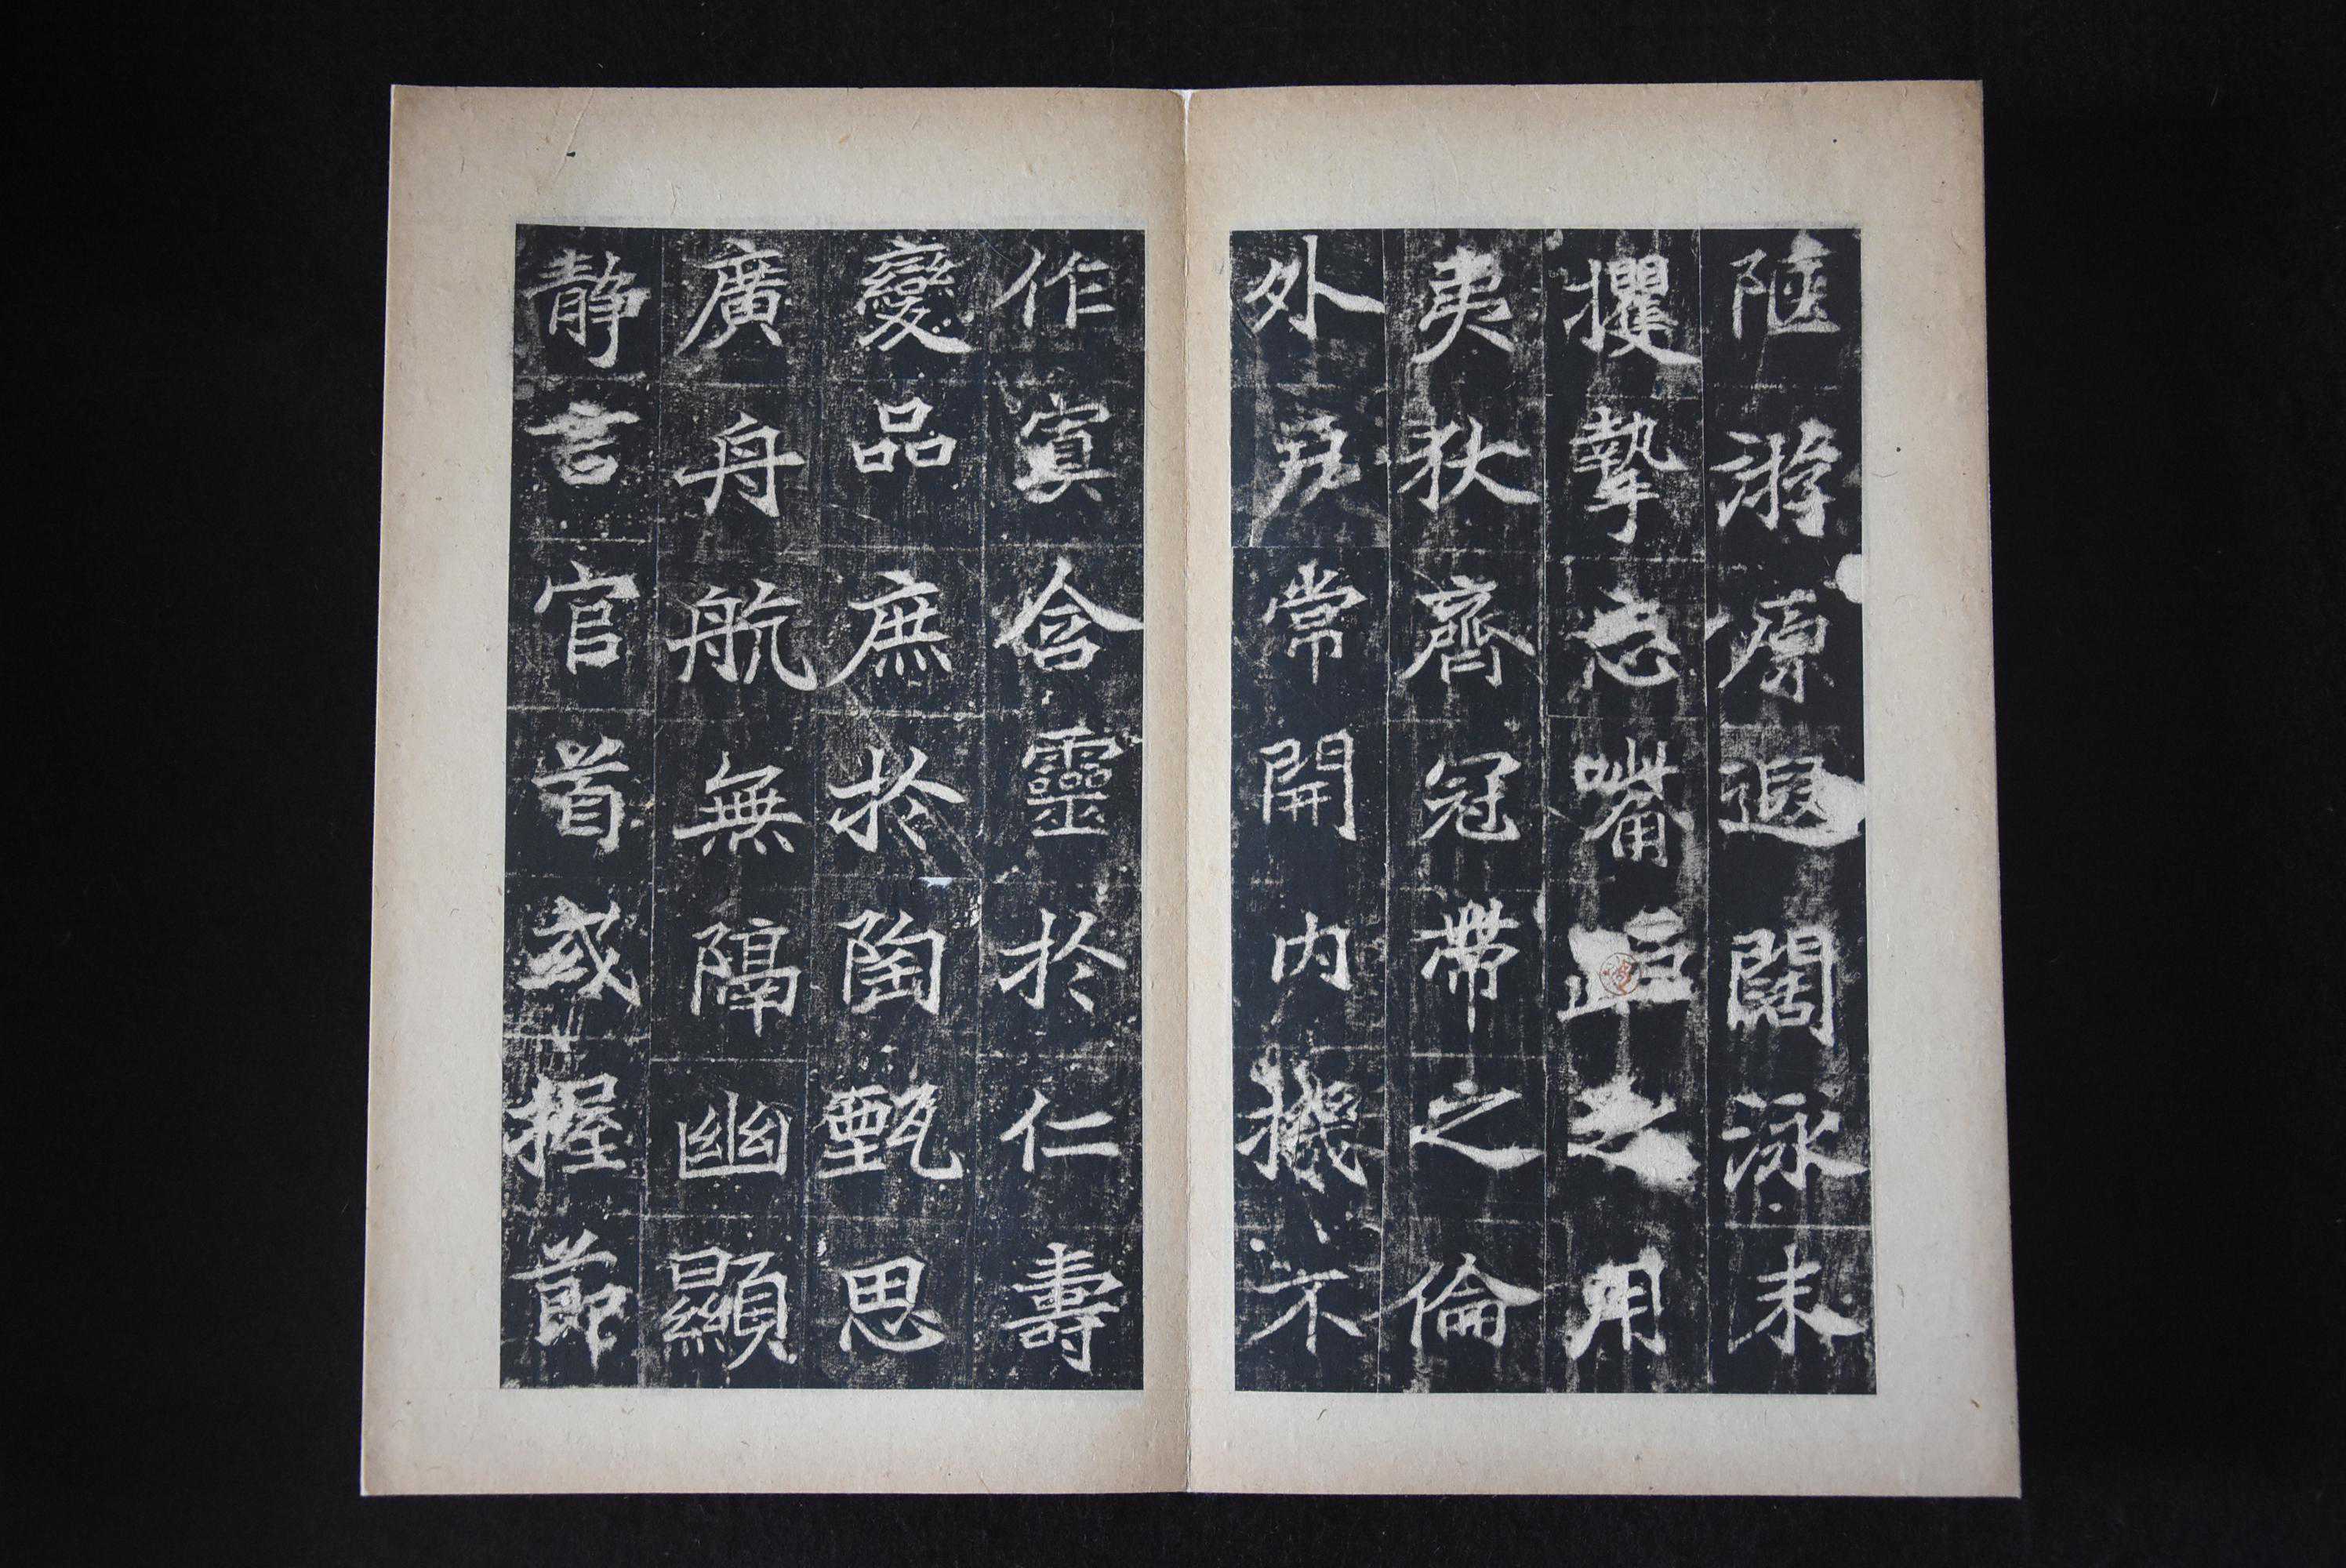 陿游原遐闊泳末
攫摯忘嘴距之用
夷狄齊冠帶之倫
外戶常開內機不
作寘含靈於仁壽
變品庶於陶甄思
廣舟航無隔幽顯
靜言官首或握節